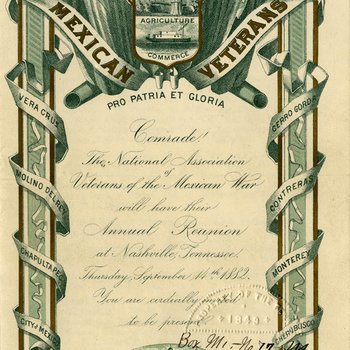 MEXICAN VETERANS
AGRICULTURE
COMMERCE
PRO PATRIA ET GLORIA
VERA CRUZ
CERRO GORDO
MOLINO DEL REY
CONTRERAS
CHAPULTAPEC
MONTEREY
CITY OF MEXICO
CHERUBUSCO
Comrade!
The National Association
of
Veterans of the Mexican War
will have their
Annual Reunion
at Nashville, Tennessee.
Thursday, September 14th 1882.
You are cordially invited
to be present.
1849
Box M1-No 17